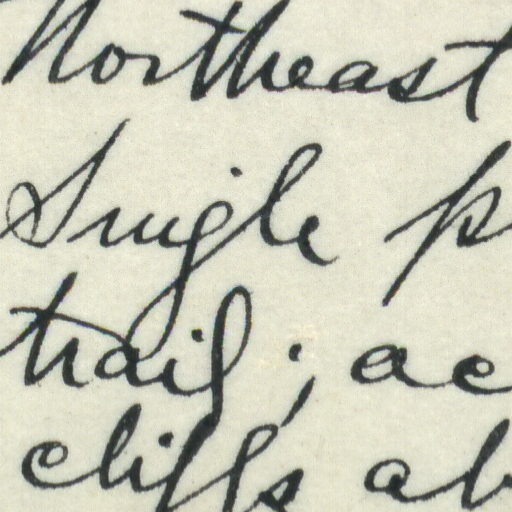 Northeast
Single p
trail; ac
cliffs ab